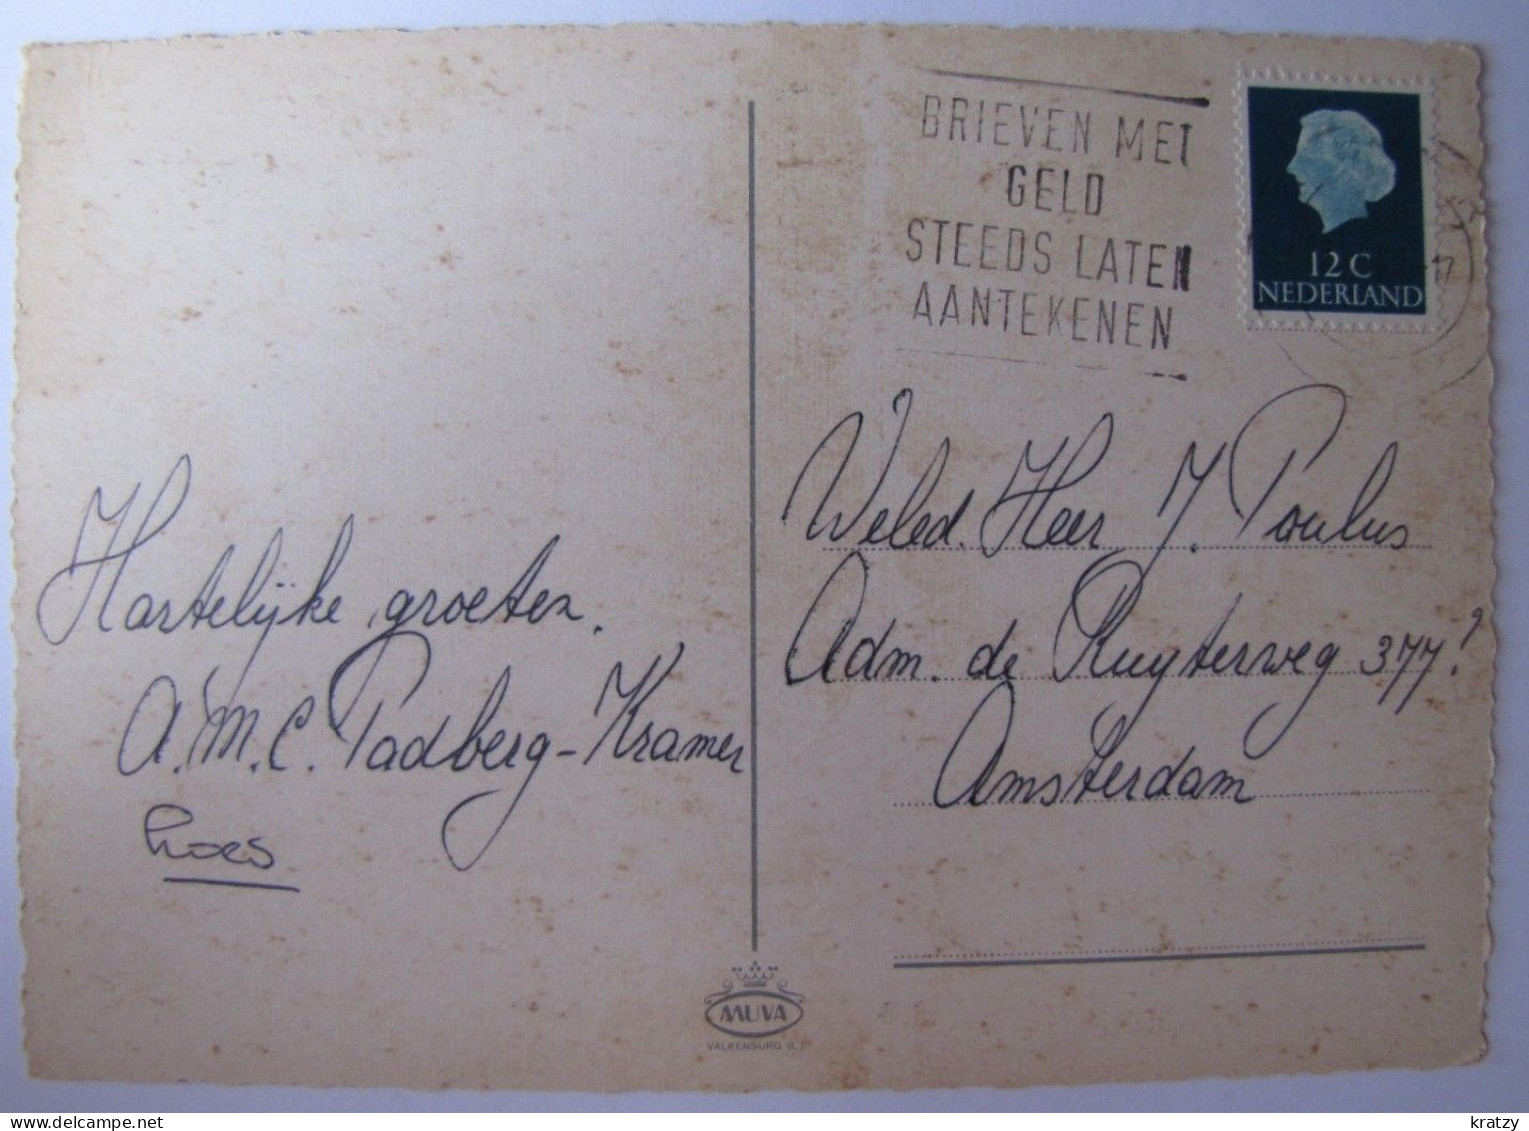 BRIEVEN MET
GELD
STEEDS LATEN
AANTEKENEN
12 C
NEDERLAND
17
Weled. Heer J. Poulus
Adm. de Ruyterweg 377!
Amsterdam
Hartelijke groeten.
A. M. C. Padberg-Kramer
MUVA
VALKENBURG
delcampe.net
kratzy